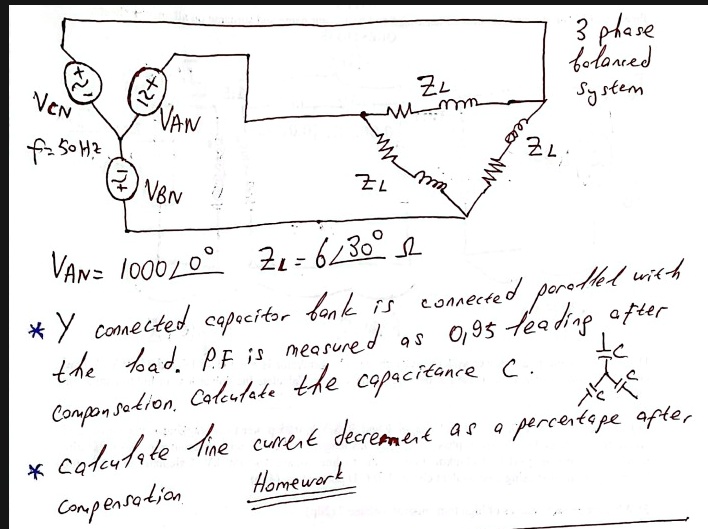 3 phase
balanced
system
ZL
VCN
VAN
f=50Hz
ZL
ZL
VBN
VAN= 1000∠0° ZL= 6∠30° Ω
* Y connected capacitor bank is connected parallel with
the load. P.F is measured as 0,95 leading after
compansation. Calculate the capacitance C.
C
C
C
* Calculate line current decrement as a percentage after
compensation Homework